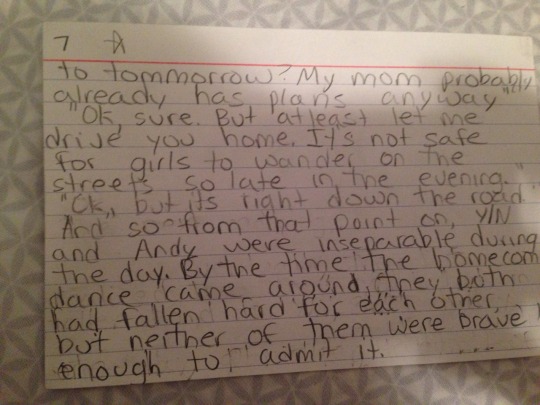 7
to tommorrow? My mom probably
already has plans anyway."
"Ok, sure. But atleast let me
drive you home. It's not safe
for girls to wander on the
streets so late in the evening."
"Ok, but its right down the road."
And so from that point on, Y/N
and Andy were inseparable during
the day. By the time the homecom
dance came around, they both
had fallen hard for each other,
but neither of them were brave
enough to admit it. ....